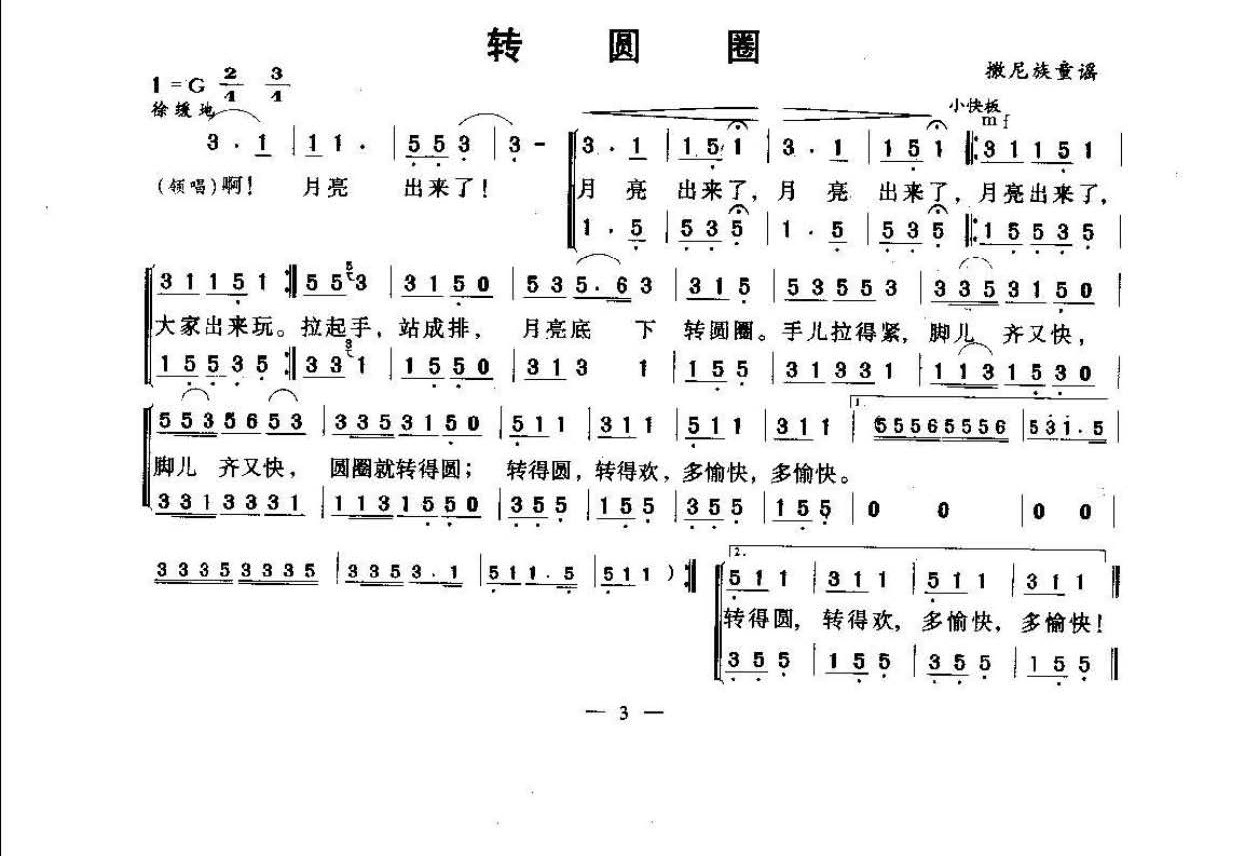 转 圆 圈
1=G 2/4 3/4
撒尼族童谣
徐缓地
小快板
mf
3 · 1 | 1 1 · | 5 5 3 | 3 - | 3 · 1 | 1 5 1 | 3 · 1 | 1 5 1 |: 3 1 1 5 1 |
(领唱)啊! 月亮 出来了! 月 亮 出来了, 月 亮 出来了, 月亮出来了,
1 · 5 | 5 3 5 | 1 · 5 | 5 3 5 |: 1 5 5 3 5 |
3 1 1 5 1 :| 5 5 3 | 3 1 5 0 | 5 3 5 · 6 3 | 3 1 5 | 5 3 5 5 3 | 3 3 5 3 1 5 0 |
大家出来玩。拉起手, 站成排, 月亮底 下 转圆圈。手儿拉得紧, 脚儿 齐又快,
1 5 5 3 5 :| 3 3 1 | 1 5 5 0 | 3 1 3 1 | 1 5 5 | 3 1 3 3 1 | 1 1 3 1 5 3 0 |
5 5 3 5 6 5 3 | 3 3 5 3 1 5 0 | 5 1 1 | 3 1 1 | 5 1 1 | 3 1 1 | 1. 5 5 5 6 5 5 5 6 | 5 3 1 · 5 |
脚儿 齐又快, 圆圈就转得圆; 转得圆, 转得欢, 多愉快, 多愉快。
3 3 1 3 3 3 1 | 1 1 3 1 5 5 0 | 3 5 5 | 1 5 5 | 3 5 5 | 1 5 5 | 0 0 | 0 0 |
3 3 3 5 3 3 3 5 | 3 3 5 3 · 1 | 5 1 1 · 5 | 5 1 1 ) :|
2. 5 1 1 | 3 1 1 | 5 1 1 | 3 1 1 ‖
转得圆, 转得欢, 多愉快, 多愉快!
3 5 5 | 1 5 5 | 3 5 5 | 1 5 5 ‖
— 3 —